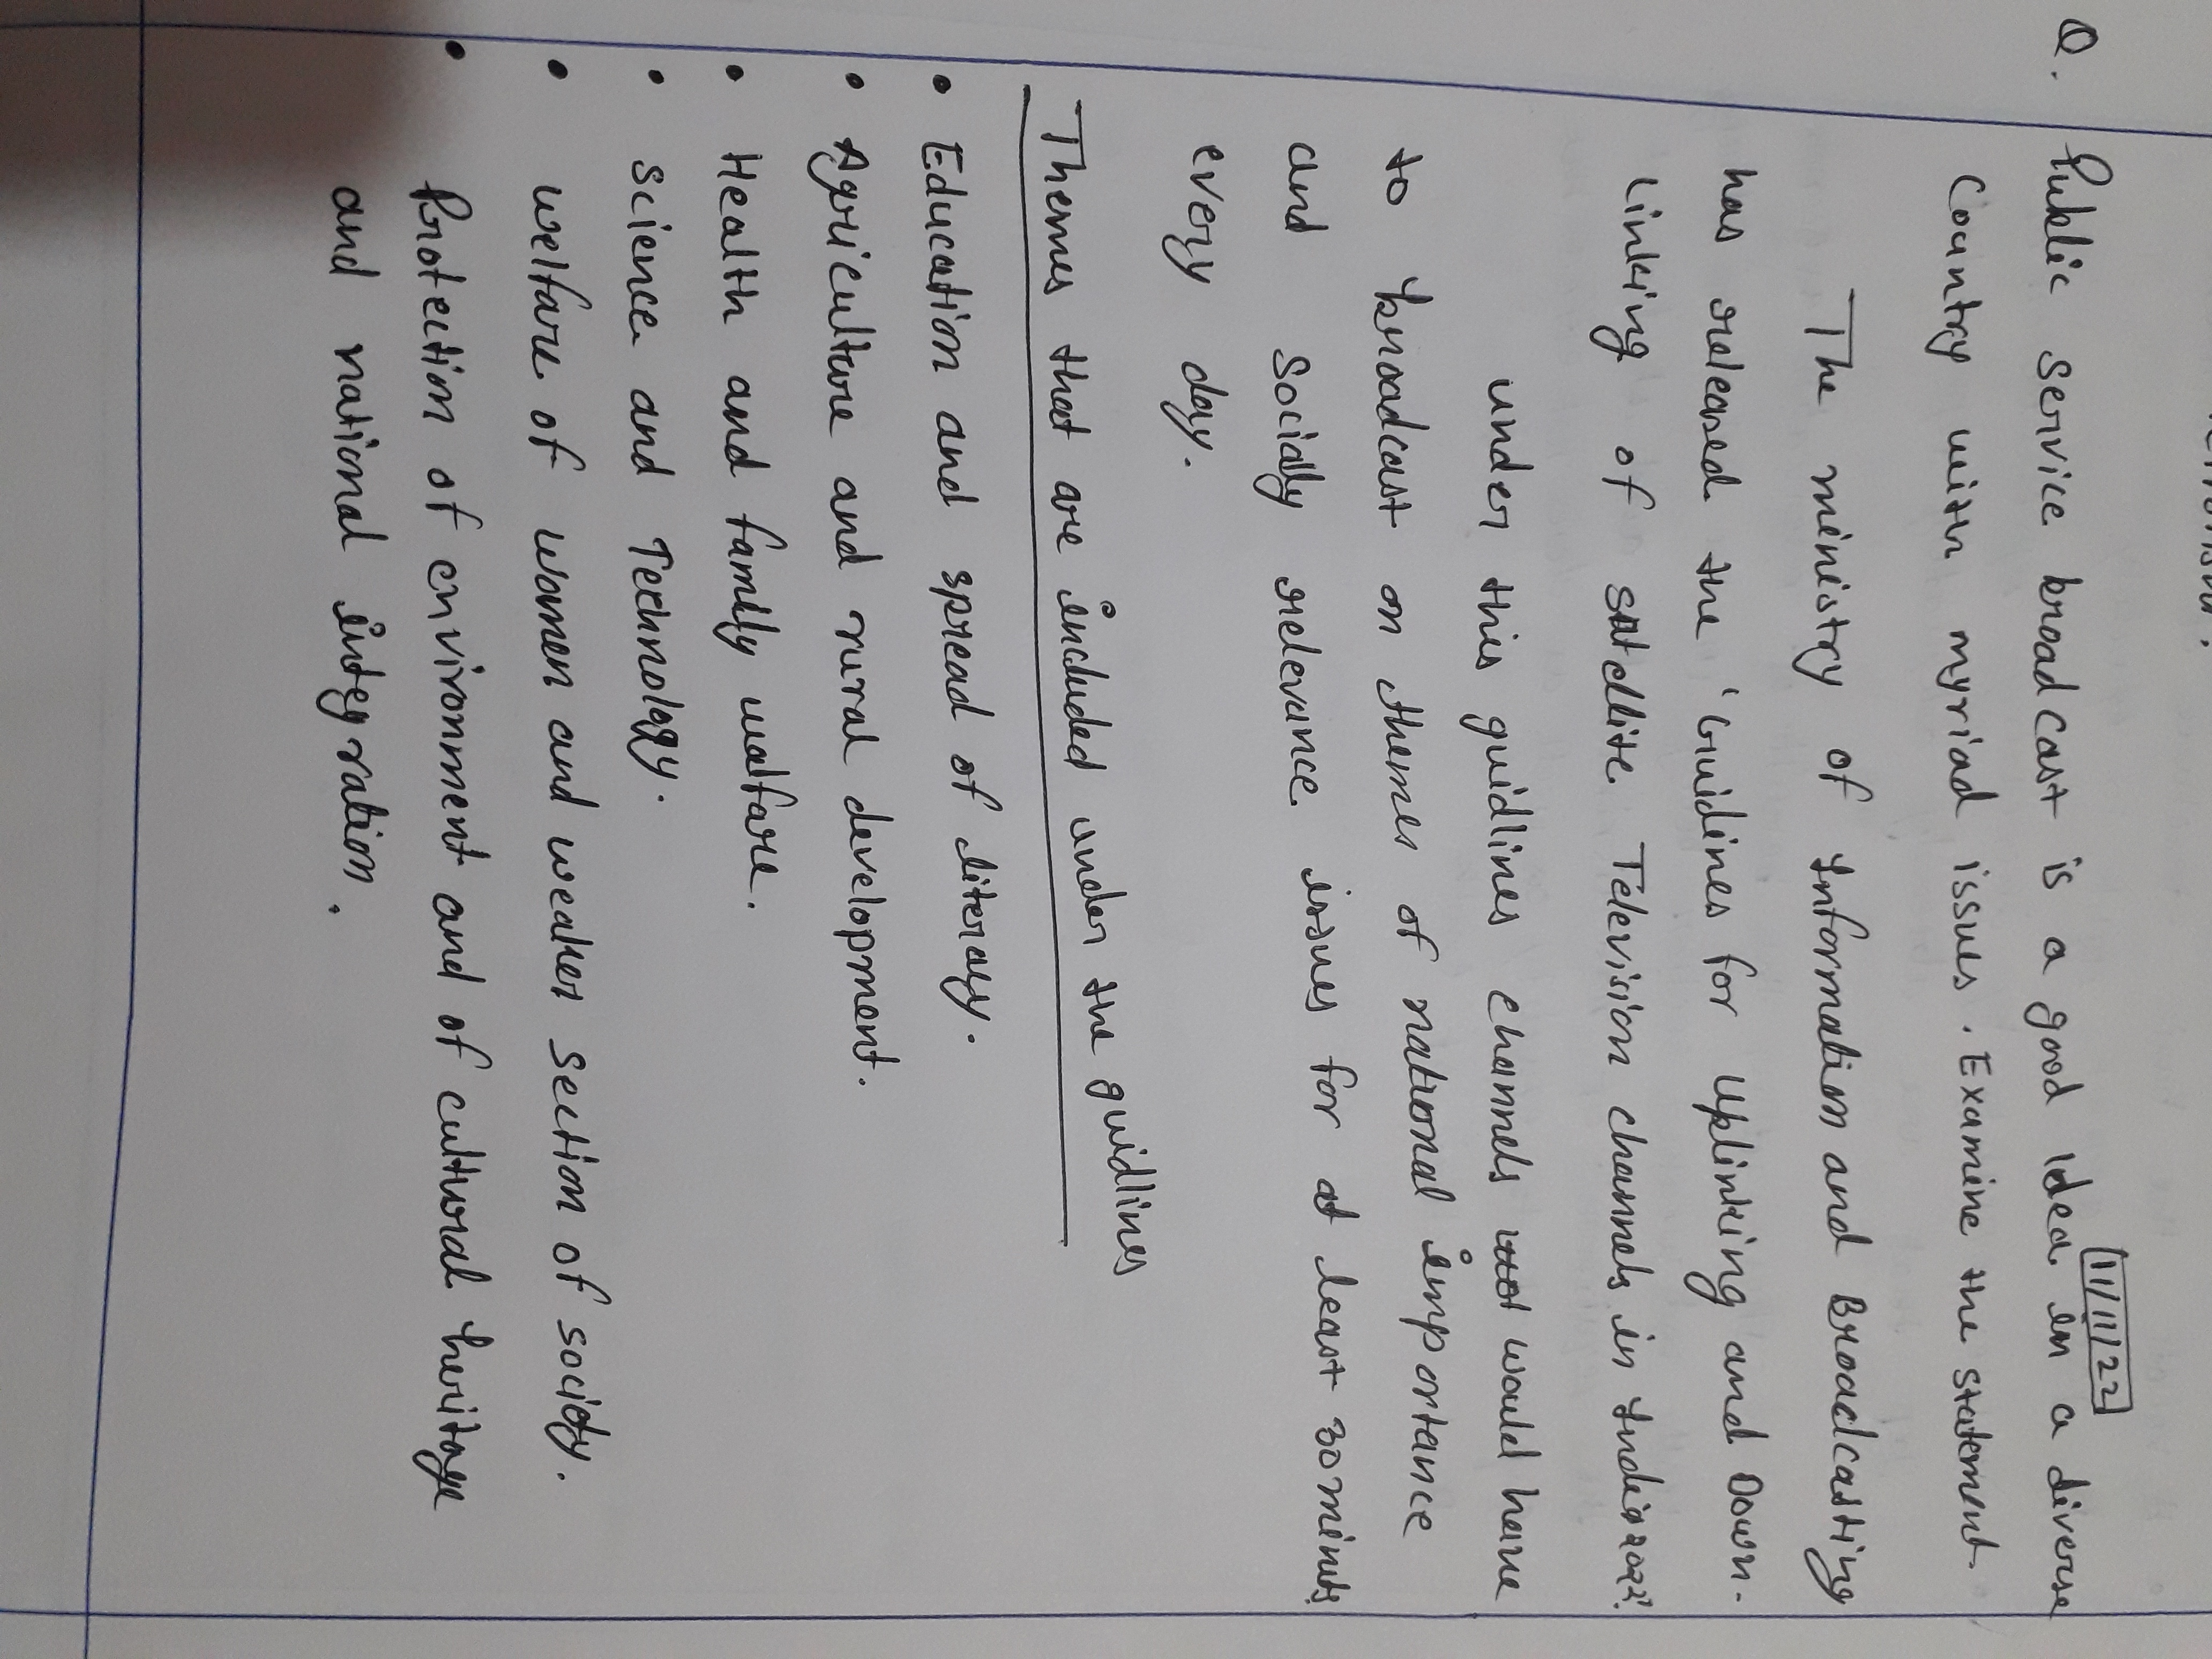 11/11/22
Q. Public service broadcast is a good idea in a diverse
country with myriad issues. Examine the statement.
The ministry of Information and Broadcasting
has released the 'Guidines for Uplinking and Down-
linking of satellite Television channels in India 2022'.
under this guidlines channels would have
to broadcast on themes of national importance
and Socially relevance issues for at least 30 minuts
every day.
Themes that are included under the guidlines
• Education and spread of literacy.
• Agriculture and rural development.
• Health and family welfare.
• Science and Technology.
• welfare of women and weaker section of society.
• Protection of environment and of cultural heritage
and national integration.